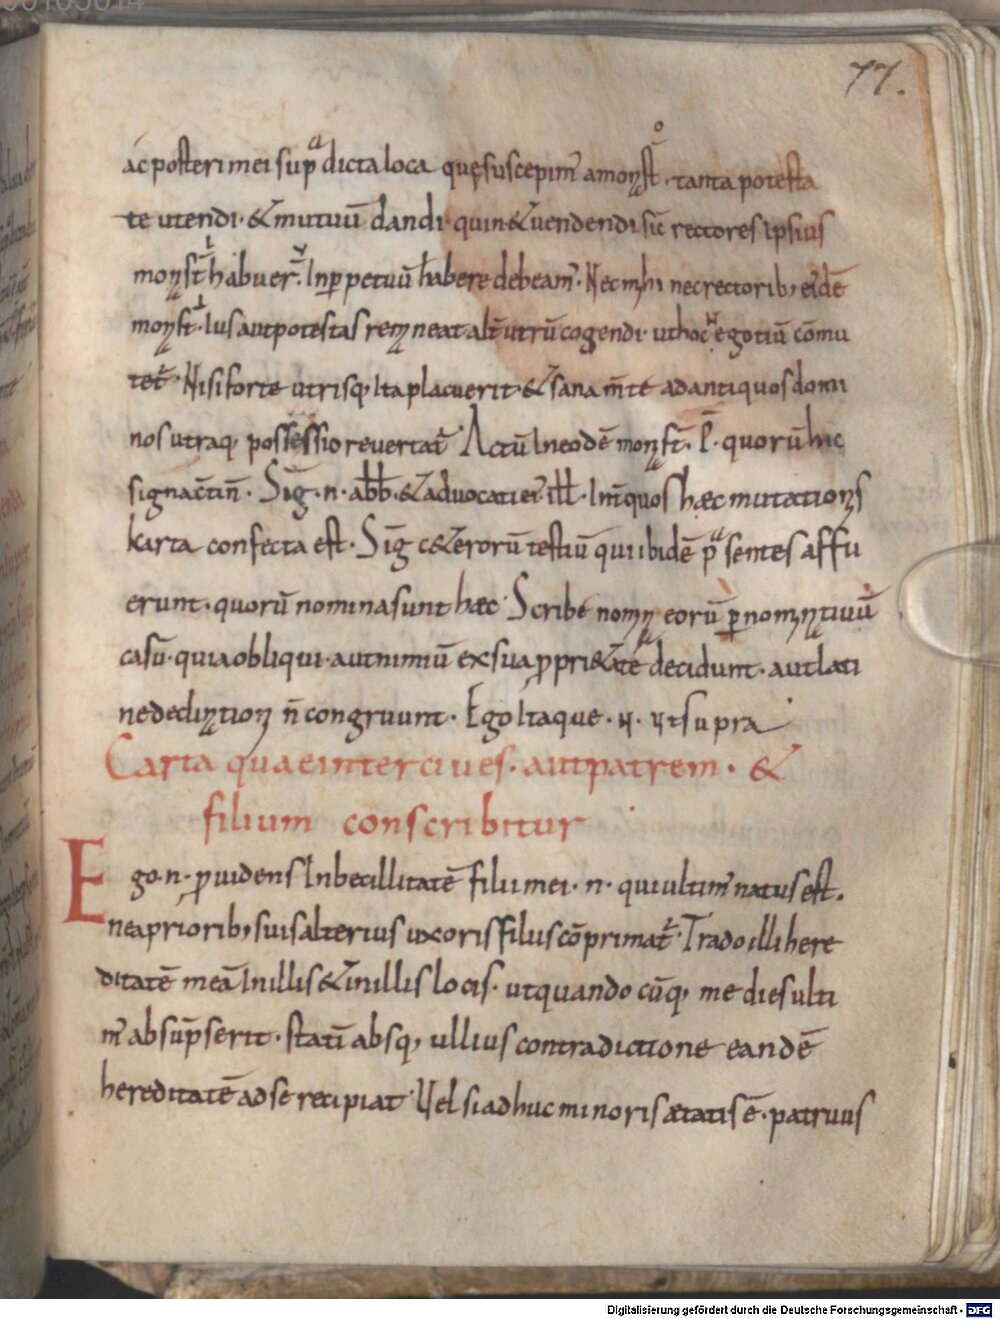 77.
ac posteri mei sup^a dicta loca quę suscepim̅ a monst^o. tanta potesta
te utendi. & mutuū dandi. quin & uendendi sic̄ rectores ipsius
monst̄ habuer̄. In ꝑpetuū habere debeam̄. Nec mihi nec rectorib; eidē
monst̄. Ius aut potestas remaneat alt̄utrū cogendi. ut hoc negotiū cōmu
tet̄. Nisi forte utrisq; ita placuerit & sana m̄te ad antiquos domi
nos utraq; possessio reuertat̄. Actū In eodē monst̄. P̄. quorū hic
signac̄ in̄. Sig̅. n. abb̄. & aduocati ei. ill̄. Int̄ quos hæc mutationis
karta confecta est. Sig̅ c&erorū testiū qui ibidē p^asentes affu
erunt. quorū nomina sunt hæc. Scribe nomin eorū ꝑ nominatiuū
casū. quia obliqui. aut nimiū ex sua ꝓpri&ate decidunt. aut lati
ne declination n̄ congruunt. Ego Itaque. n. ut supra
Carta quae inter ciues. aut patrem. &
filium conscribitur
Ego. n. ꝓuidens Inbecillitatē filii mei. n. qui ultim̄ natus est.
ne a priorib; suis alterius uxoris filiis cōprimat̄. Trado illi here
ditatē meā In illis & in illis locis. ut quando cūq; me dies ulti
m̄ absūpserit. statī absq; ullius contradictione eandē
hereditatē ad se recipiat. Vel si adhuc minoris ætatis ē. patruus
Digitalisierung gefördert durch die Deutsche Forschungsgemeinschaft - DFG